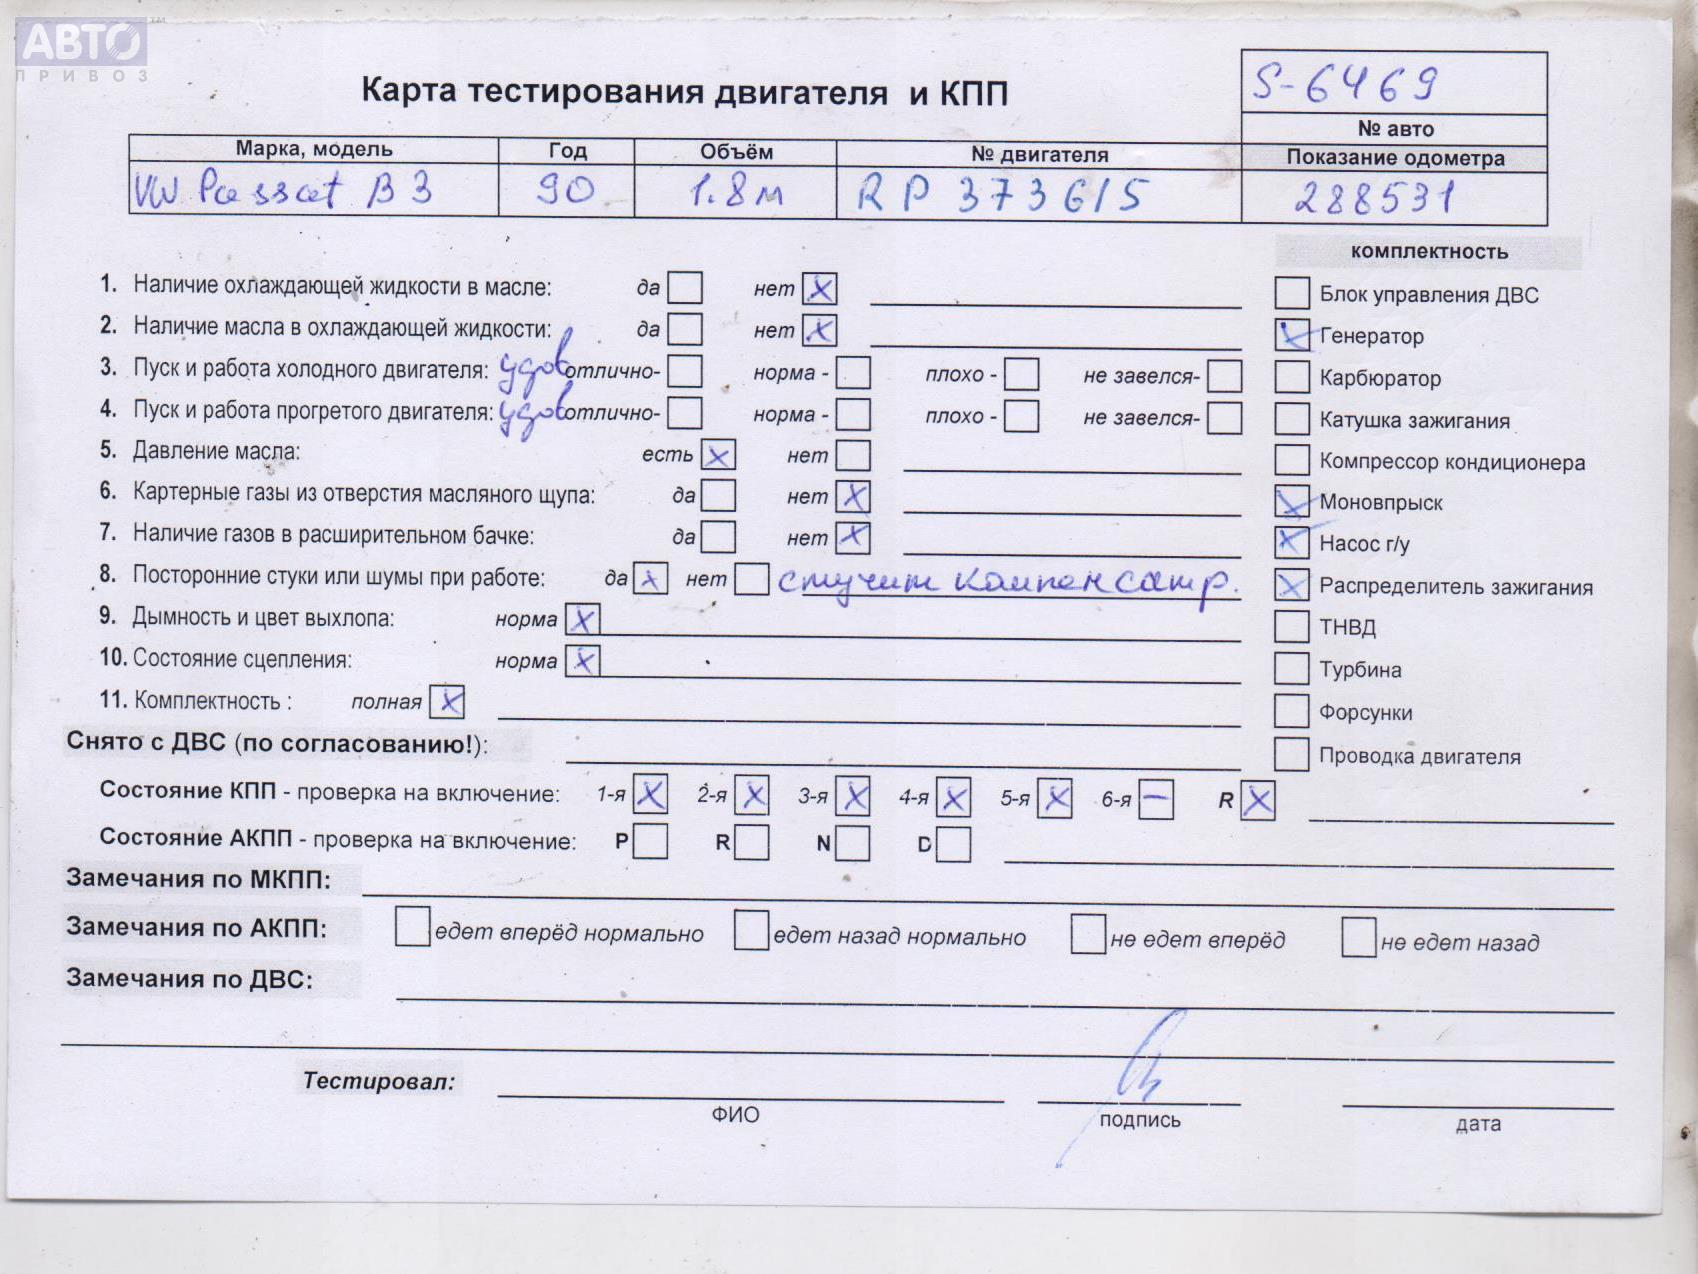 АВТО
ПРИВОЗ
Карта тестирования двигателя и КПП
S-6469
№ авто
Марка, модель Год Объём № двигателя Показание одометра
VW Passat B3 90 1.8м RP 373615 288531
комплектность
1. Наличие охлаждающей жидкости в масле: да нет X
Блок управления ДВС
2. Наличие масла в охлаждающей жидкости: да нет X
X Генератор
3. Пуск и работа холодного двигателя: удов отлично- норма - плохо - не завелся-
Карбюратор
4. Пуск и работа прогретого двигателя: удов отлично- норма - плохо - не завелся-
Катушка зажигания
5. Давление масла: есть X нет
Компрессор кондиционера
6. Картерные газы из отверстия масляного щупа: да нет X
X Моновпрыск
7. Наличие газов в расширительном бачке: да нет X
X Насос г/у
8. Посторонние стуки или шумы при работе: да X нет стучит компенсатр.
X Распределитель зажигания
9. Дымность и цвет выхлопа: норма X
ТНВД
10. Состояние сцепления: норма X
Турбина
11. Комплектность : полная X
Форсунки
Снято с ДВС (по согласованию!):
Проводка двигателя
Состояние КПП - проверка на включение: 1-я X 2-я X 3-я X 4-я X 5-я X 6-я — R X
Состояние АКПП - проверка на включение: P R N D
Замечания по МКПП:
Замечания по АКПП: едет вперёд нормально едет назад нормально не едет вперёд не едет назад
Замечания по ДВС:
Тестировал:
ФИО подпись дата